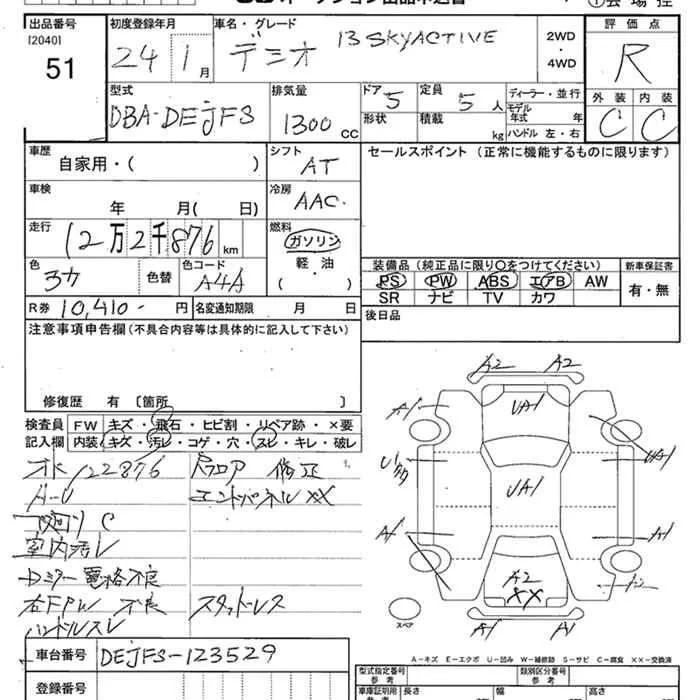 出品番号
[2040]
51
初度登録年月
24 1月
車名・グレード
デミオ 13 SKYACTIVE
2WD
・
4WD
評価点
R
外装 内装
C C
型式
DBA-DEJFS
排気量
1300 cc
ドア 5
定員 5人
形状
積載 kg
ディーラー・並行
モデル
年式 年
ハンドル 左・右
車歴
自家用・( )
シフト
AT
セールスポイント (正常に機能するものに限ります)
車検
年 月( 日)
冷房
AAC
走行
12万2千876 km
燃料
ガソリン
・
軽・油
( )
色
色替
色コード
A4A
装備品 (純正品に限り○をつけてください)
新車保証書
PS PW ABS エアB AW
SR ナビ TV カワ
有・無
R券 10,410- 円
名変通知期限 月 日
後日品
注意事項申告欄(不具合内容等は具体的に記入して下さい)
修復歴 有 〔箇所 〕
検査員
記入欄
FW キズ・飛石・ヒビ割・リペア跡・×要
内装 キズ・汚レ・コゲ・穴・スレ・キレ・破レ
122876
修正
A-U
エンドパネルXX
下廻り C
室内汚レ
ミラー電格不良
右FPW不良
スタッドレス
ハンドルスレ
A2 A2
A1 UA1
UA1
UA1
A1 A1
A2
XX
A1 A1
スペア
A-キズ E-エクボ U-凹み W-補修跡 S-サビ C-腐食 XX-交換済
車台番号 DEJFS-123529
登録番号
型式指定番号
参考
類別区分番号
参考
車庫証明用
参考
長さ 幅 高さ